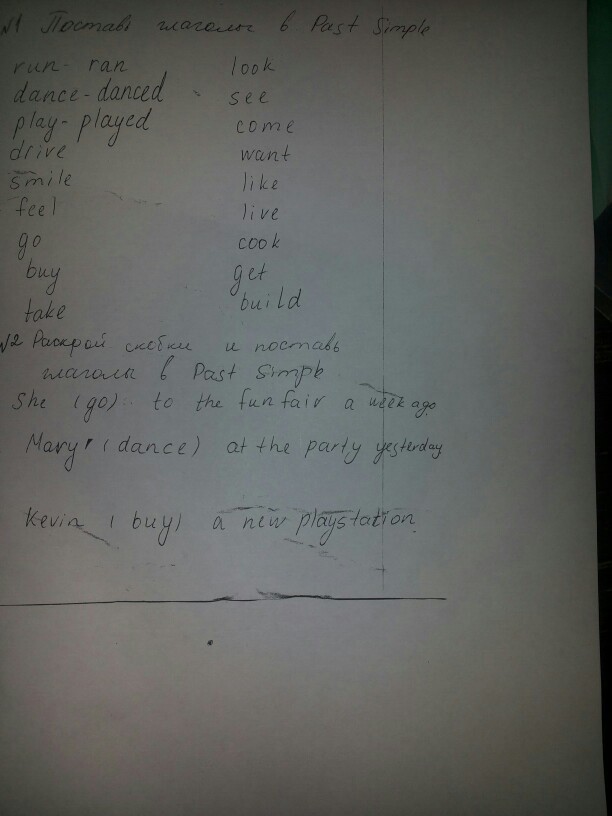 №1 Поставь глаголы в Past Simple
run - ran look
dance - danced see
play - played come
drive want
smile like
feel live
go cook
buy get
take build
№2 Раскрой скобки и поставь
глаголы в Past Simple
She (go) to the funfair a week ago
Mary (dance) at the party yesterday
Kevin (buy) a new playstation.